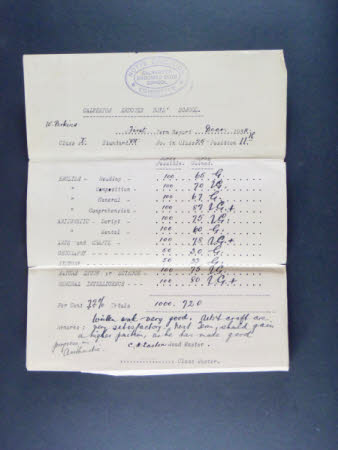 NOTTS EDUCATION
CALVERTON
ENDOWED BOYS'
SCHOOL
COMMITTEE
CALVERTON ENDOWED BOYS' SCHOOL.
W. Perkins
First Term Report
Class No. in Class Position
Marks Possible. Marks Gained.
ENGLISH - Reading 100 66 G.
" Composition 100 70 V.G.
" General 100 67 G.
" Comprehension 100 V.G.+
ARITHMETIC - Script 100 75 V.G.
" Mental 100 60 G.
ARTS and CRAFTS. 100 78 V.G.+
GEOGRAPHY 50 G.
HISTORY 50 G.
NATURE STUDY or SCIENCE 100 75 V.G.
GENERAL INTELLIGENCE 100 V.G.+
Per Cent 72% Totals 1000. 720
Written work very good. Art & craft are
Remarks: very satisfactory. Next Term, should gain
a higher position, as he has made good
progress in Arithmetic.
Head Master.
Class Master.